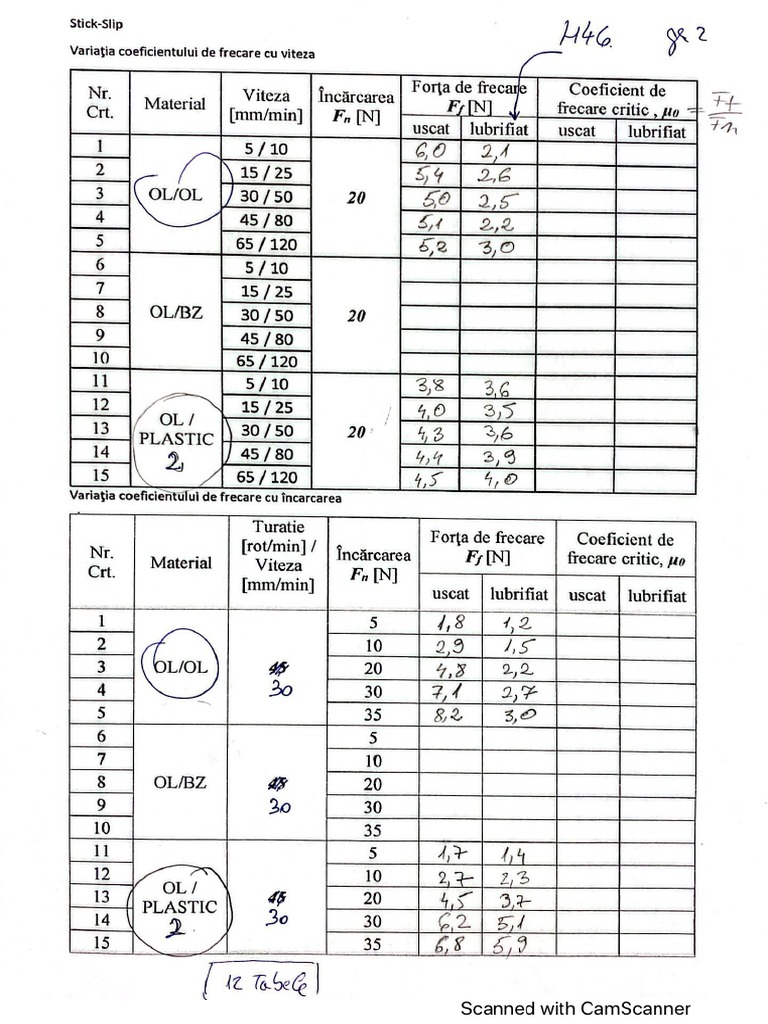 Stick-Slip
H46. gr 2
Variația coeficientului de frecare cu viteza
Nr. Crt. Material Viteza [mm/min] Încărcarea Fn [N] Forța de frecare Ff [N] Coeficient de frecare critic , μ0 = Ff/Fn
uscat lubrifiat uscat lubrifiat
1 OL/OL 5 / 10 20 6,0 2,1
2 15 / 25 5,4 2,6
3 30 / 50 5,0 2,5
4 45 / 80 5,1 2,2
5 65 / 120 5,2 3,0
6 OL/BZ 5 / 10 20
7 15 / 25
8 30 / 50
9 45 / 80
10 65 / 120
11 OL / PLASTIC 2 5 / 10 20 3,8 3,6
12 15 / 25 4,0 3,5
13 30 / 50 4,3 3,6
14 45 / 80 4,4 3,9
15 65 / 120 4,5 4,0
Variația coeficientului de frecare cu încarcarea
Nr. Crt. Material Turatie [rot/min] / Viteza [mm/min] Încărcarea Fn [N] Forța de frecare Ff [N] Coeficient de frecare critic, μ0
uscat lubrifiat uscat lubrifiat
1 OL/OL 30 5 1,8 1,2
2 10 2,9 1,5
3 20 4,8 2,2
4 30 7,1 2,7
5 35 8,2 3,0
6 OL/BZ 30 5
7 10
8 20
9 30
10 35
11 OL / PLASTIC 2 30 5 1,7 1,4
12 10 2,7 2,3
13 20 4,5 3,7
14 30 6,2 5,1
15 35 6,8 5,9
12 Tabele
Scanned with CamScanner